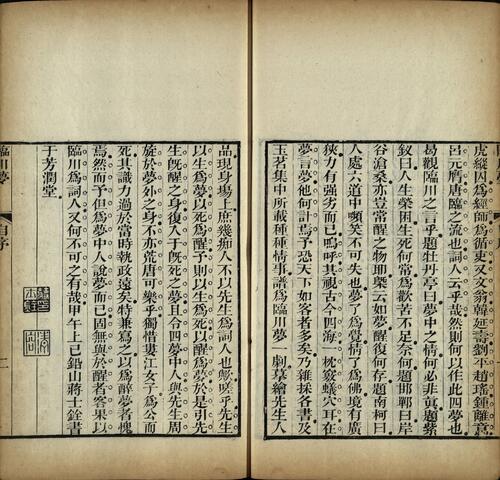 虎縱囚爲經師爲循吏又文翁韓延壽劉平趙瑤鍾離意
呂元膺唐臨之流也詞人云乎哉然則何以作此四夢也
曷觀臨川之言乎題牡丹亭曰夢中之情何必非眞題紫
釵曰人生榮困生死何常爲歡苦不足奈何題邯鄲曰岸
谷滄桑亦豈常醒之物耶槩云如夢醒復何存題南柯曰
人處六道中嚬笑不可失也夢了爲覺情了爲佛境有廣
狹力有强劣而已嗚呼其視古今四海一枕竅蟻穴耳在
夢言夢他何計焉予恐天下如客者多矣乃雜採各書及
玉茗集中所載種種情事譜爲臨川夢一劇摹繪先生人
品現身場上庶幾癡人不以先生爲詞人也歟嗟乎先生
以生爲夢以死爲醒予則以生爲死以醒爲夢於是引先
生旣醒之身復入于旣死之夢且令四夢中人與先生周
旋於夢外之身不亦荒唐可樂乎獨惜婁江女子爲公而
死其識力過於當時執政遠矣特兼寫之以爲醉夢者愧
焉然而予但爲夢中人說夢而已固無與於醒者客果以
臨川爲詞人又何不可之有哉甲午上巳鉛山蔣士銓書
于芳潤堂
臨川夢 自序 二